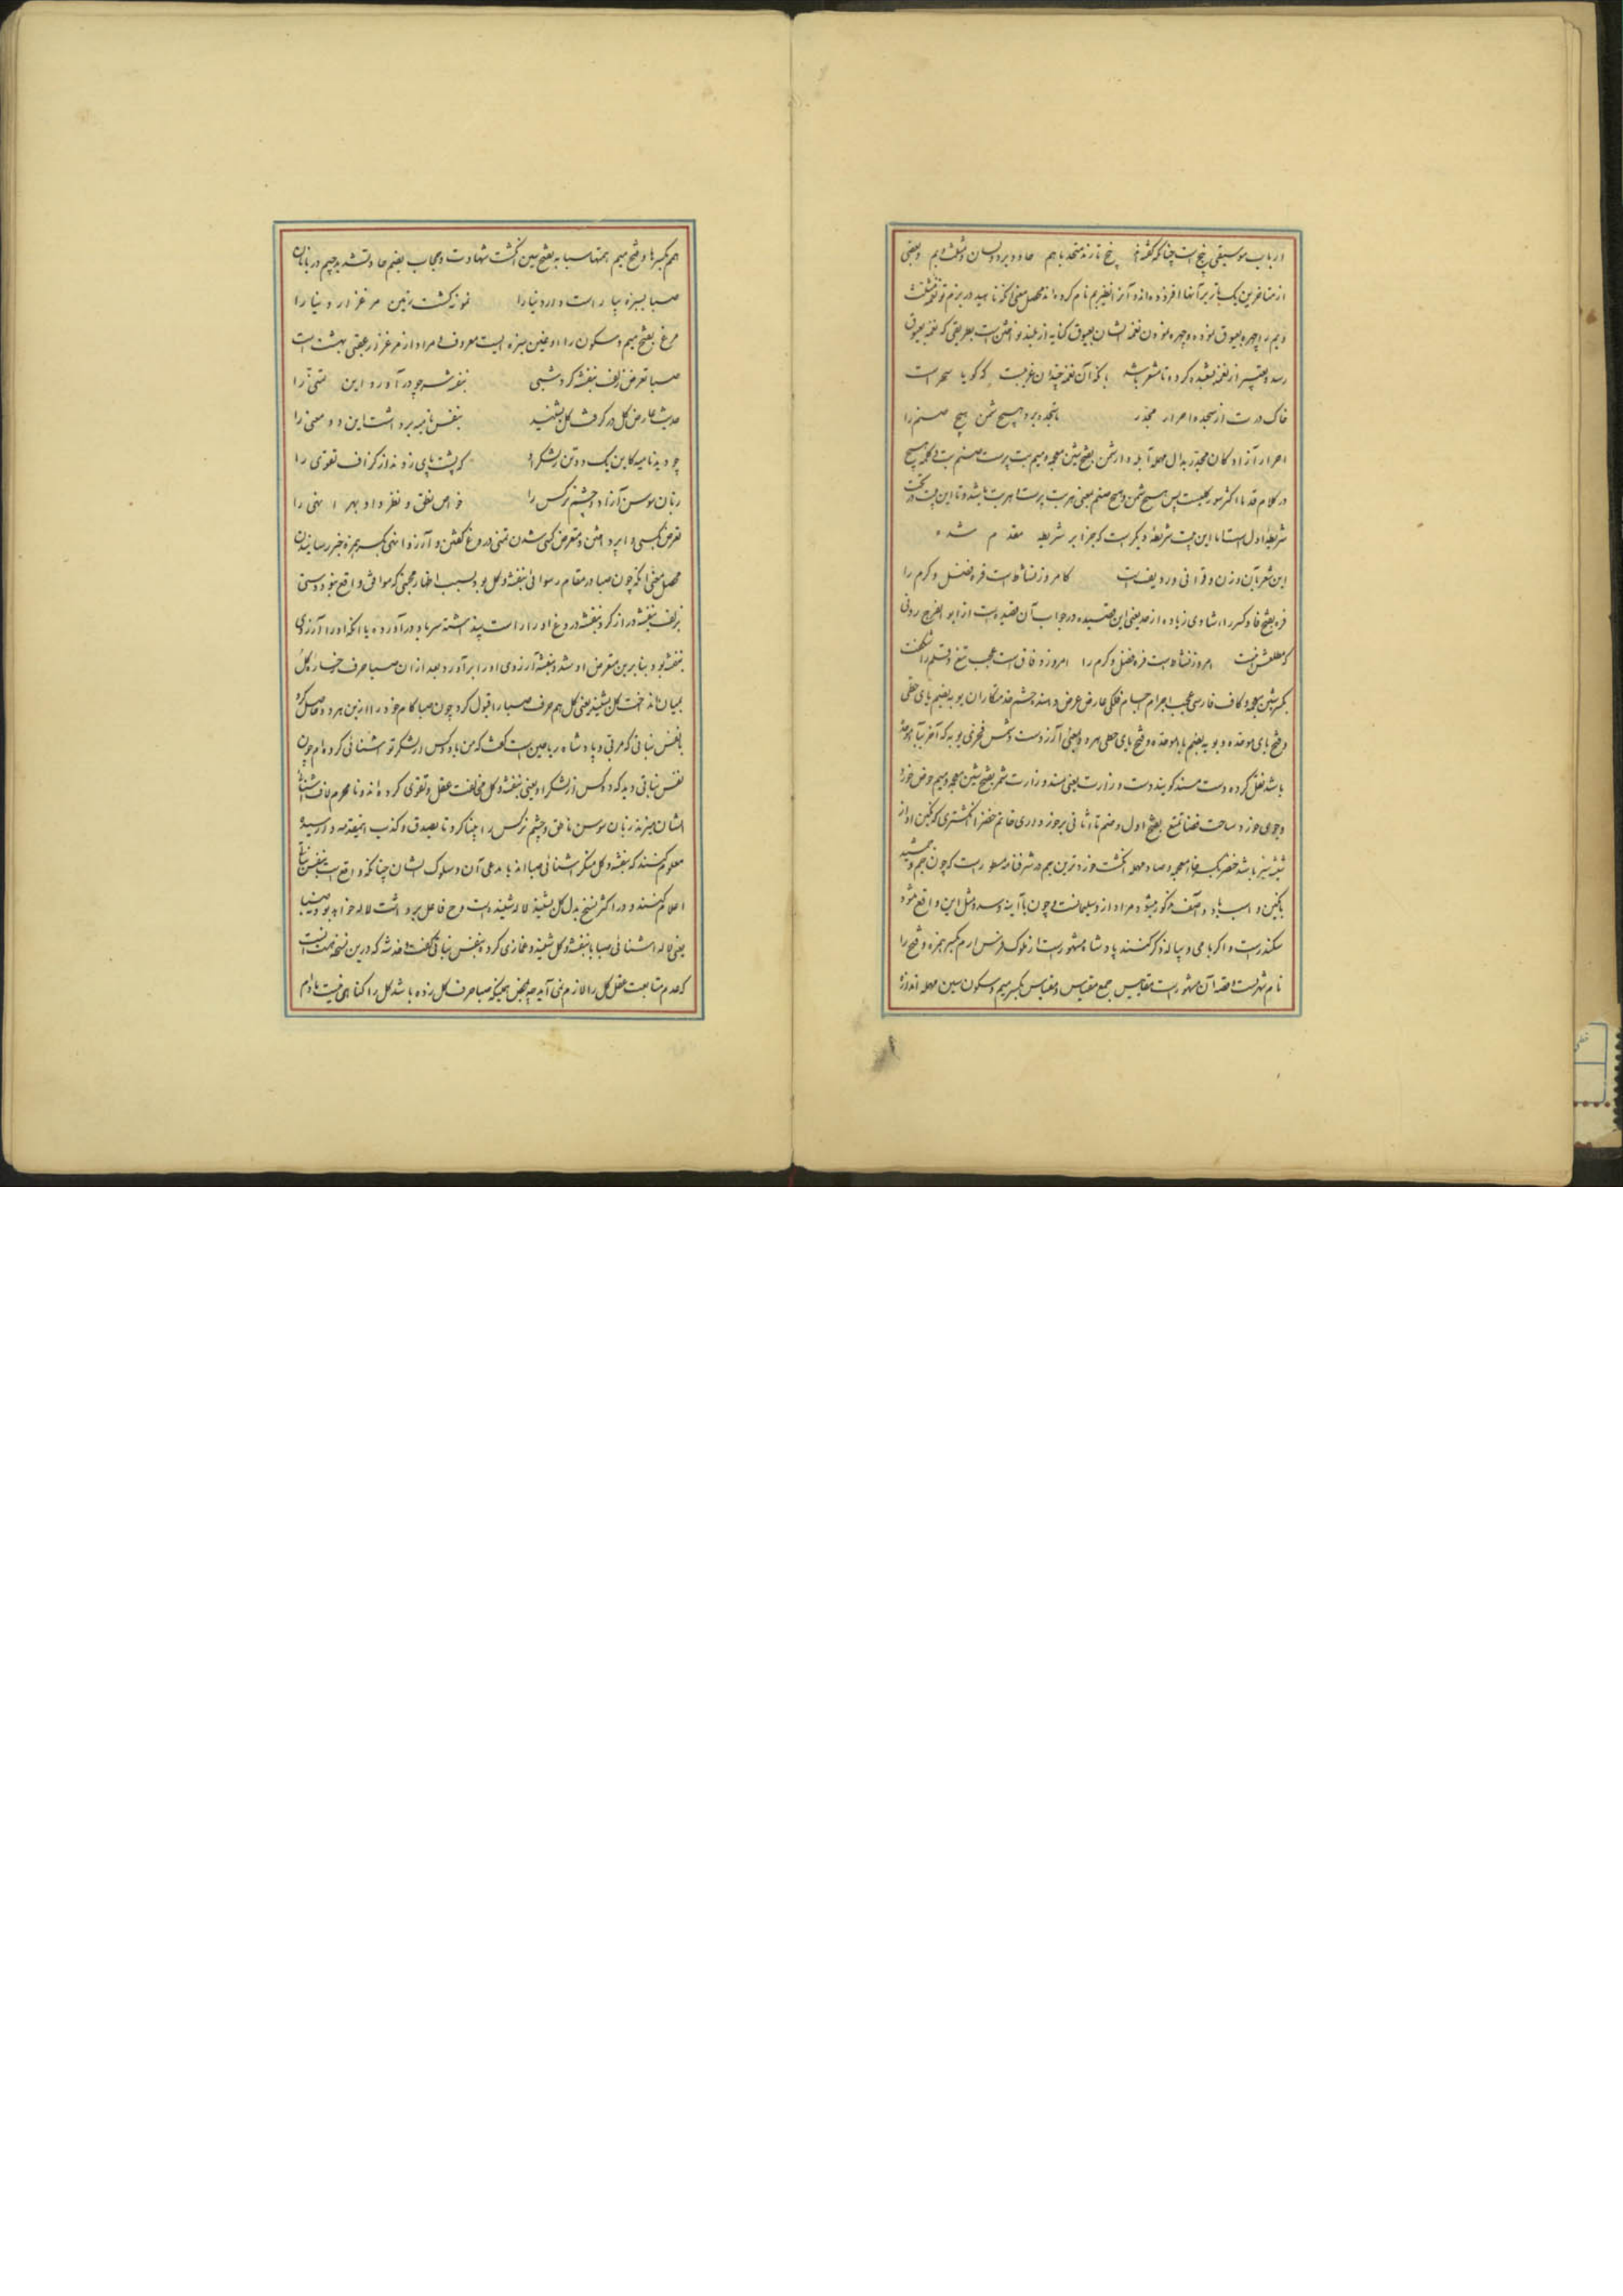 در باب موسیقی پنج است چنانکه گفته‌اند پنج تارند متحد باهم حاد و زیر و مثلث و بم و بعضی
از متاخرین یک تار بر آنها افزوده‌اند و آنرا نام کرده‌اند محصل معنی آنکه ناهید در بزم تو
و بم را چهره بعیوق نموده و چهره نمودن نغمه ایشان بعیوق کنایه از بلند نواختن است بطریقی که نغمه بعیوق
رسد و تعبیر از نغمه بشعبده کرده تا مشعر باشد بآنکه آن نغمه چندان غریبست که گویا سحر است
خاک درت از سجده احرار مجدر تا نبرد هیچ شمن هیچ صنم را
احرار آزادگان مجدر بدال مهمله آبله‌دار شمن بفتح شین معجمه و میم بت پرست صنم بت و کلمه هیچ
در کلام قدما اکثر سور کلیست پس هیچ شمن و هیچ صنم یعنی هر بت پرست و هر بت باشد و تا این بیت در تحت
شریطه اول است اما این بیت شریطه دیگر است که جزا بر شریطه مقدم شده
این شعر بآن وزن و قوافی و ردیفست کامروز نشاطست فره فضل و کرم را
فره بفتح فا و کسر را شادی زیاده از حد یعنی این قصیده در جواب آن قصیده است از ابو الفرج رونی
که مطلعش اینست امروز نشاطست فره فضل و کرم را امروز وفاقست عجب تیغ و قلم را شگفت
بکسر شین معجمه و کاف فارسی عجب اجرام اجسام فلکی عارض عرض دهنده حشم خدمتکاران بو به بضم بای حطی
و فتح بای موحده و بو یه بضم بای موحده و فتح بای حطی هر دو بمعنی آرزوست و شمس فخری
باشد نقل کرده دست مسند گویند دست وزارت یعنی مسند وزارت شمر بفتح شین معجمه و میم حوض خورد
و جوی خورد ساحت فضا تمتع بفتح اول و ضم تا ثانی برخورداری خاتم خضرا انگشتری که نگین او از
شیشه سبز باشد خنصر بکسر خاء معجمه و صاد مهمله انگشت خوردترین جم در شرفنامه مسطور است که چون جم و جمشید
با نگین و اسب و باد و آصف مذکور میشود مراد از و سلیمانست و چون با آینه و سد و مثل این واقع شود
سکندرست و اگر با می و پیاله ذکر کنند پادشاه مشهورست از ملوک فرس ارم بکسر همزه و فتح را
نام شهریست و قصه آن مشهورست مقاییس جمع مقیاس و مقیاس بکسر میم و سکون سین مهمله اندازه
همم بکسر ها و فتح میم همتها سبابه بفتح سین انگشت شهادت و حجاب بضم حا و تشدید جیم دربانان
صبا بسبزه بیاراست دار دنیا را نمونه گشت زمین مرغزار دنیا را
مرغ بفتح میم و سکون را و غین سبزه ایست معروف و مراد از مرغزار عقبی بهشت است
صبا تعرض زلف بنفشه کرد شبی بنفشه سر چو درآورد این تمنی را
حدیث عارض گل درگرفت گل بشنید بنفس نامیه برداشت این دو معنی را
چو دید نامیه کاین یک دو تن ز لشکر او که پشت پای زدند از گزاف تقوی را
زبان سوسن آزاد و چشم نرگس را خواص نطق و نظر داد بهر انهی را
تعرض کسی را پرداختن و متعرض کسی شدن تمنی دروغ گفتن و آرزو انهی بکسر همزه خبر رسانیدن
محصل معنی آنکه چون صبا در مقام رسوائی بنفشه و گل بود بسبب اظهار محبتی که موافق واقع نبود دستی
بزلف بنفشه دراز کرد بنفشه دروغ او را راست پنداشته سر باو درآورده یا آنکه او را آرزوی
بنفشه بود بنابرین متعرض او شد و بنفشه آرزوی او را برآورد بعد از ان صبا حرف رخساره گل
بمیان انداخت گل بشنید یعنی گل هم حرف صبا را قبول کرد چون صبا کام خود را ازین هر دو حاصل کرد
بانفس نباتی که مربی و پادشاه ریاحین است گفت که من با دو کس از لشکر تو آشنائی کرده‌ام چون
نفس نباتی دید که دو کس از لشکر او یعنی بنفشه و گل مخالفت عقل و تقوی کرده‌اند و نامحرم
ایشان میزند زبان سوسن ناطق و چشم نرگس را بینا کرد تا بصدق و کذب این مقدمه وا رسیده
معلوم کنند که بنفشه و گل منکر آشنائی صبا اند یا مدعی آن و سلوک ایشان چنانکه واقع است بنفس نباتی
اعلام کنند و در اکثر نسخ بدل گل بشنید لاله شنیده است و ح فاعل برداشت لاله خواهد بود
یعنی لاله آشنائی صبا با بنفشه و گل شنید و غمازی کرده بنفس نباتی گفت و خدشه که درین نسخه هست اینست
که عدم متابعت عقل گل را لازم نمی‌آید چه بمحض همینکه صبا حرف گل زده باشد گل را گناهی نیست مادام